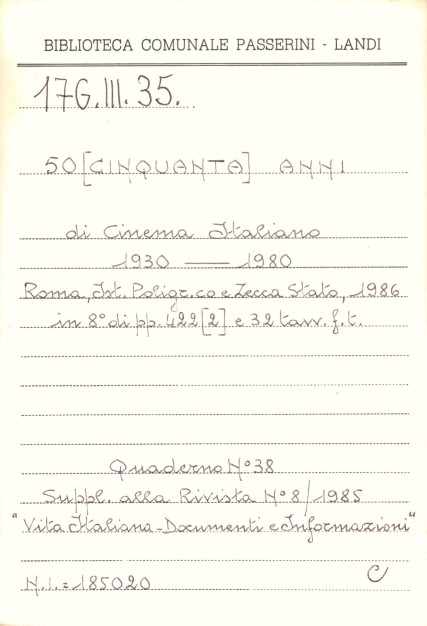 BIBLIOTECA COMUNALE PASSERINI - LANDI
176.III.35.
50 [CINQUANTA] ANNI
di Cinema Italiano
1930 — 1980
Roma, Ist. Poligr.co e Zecca Stato, 1986
in 8° di pp. 422 [2] e 32 tavv. f.t.
Quaderno N° 38
Suppl. alla Rivista N° 8/1985
"Vita Italiana - Documenti e Informazioni"
N.i. = 185020
C